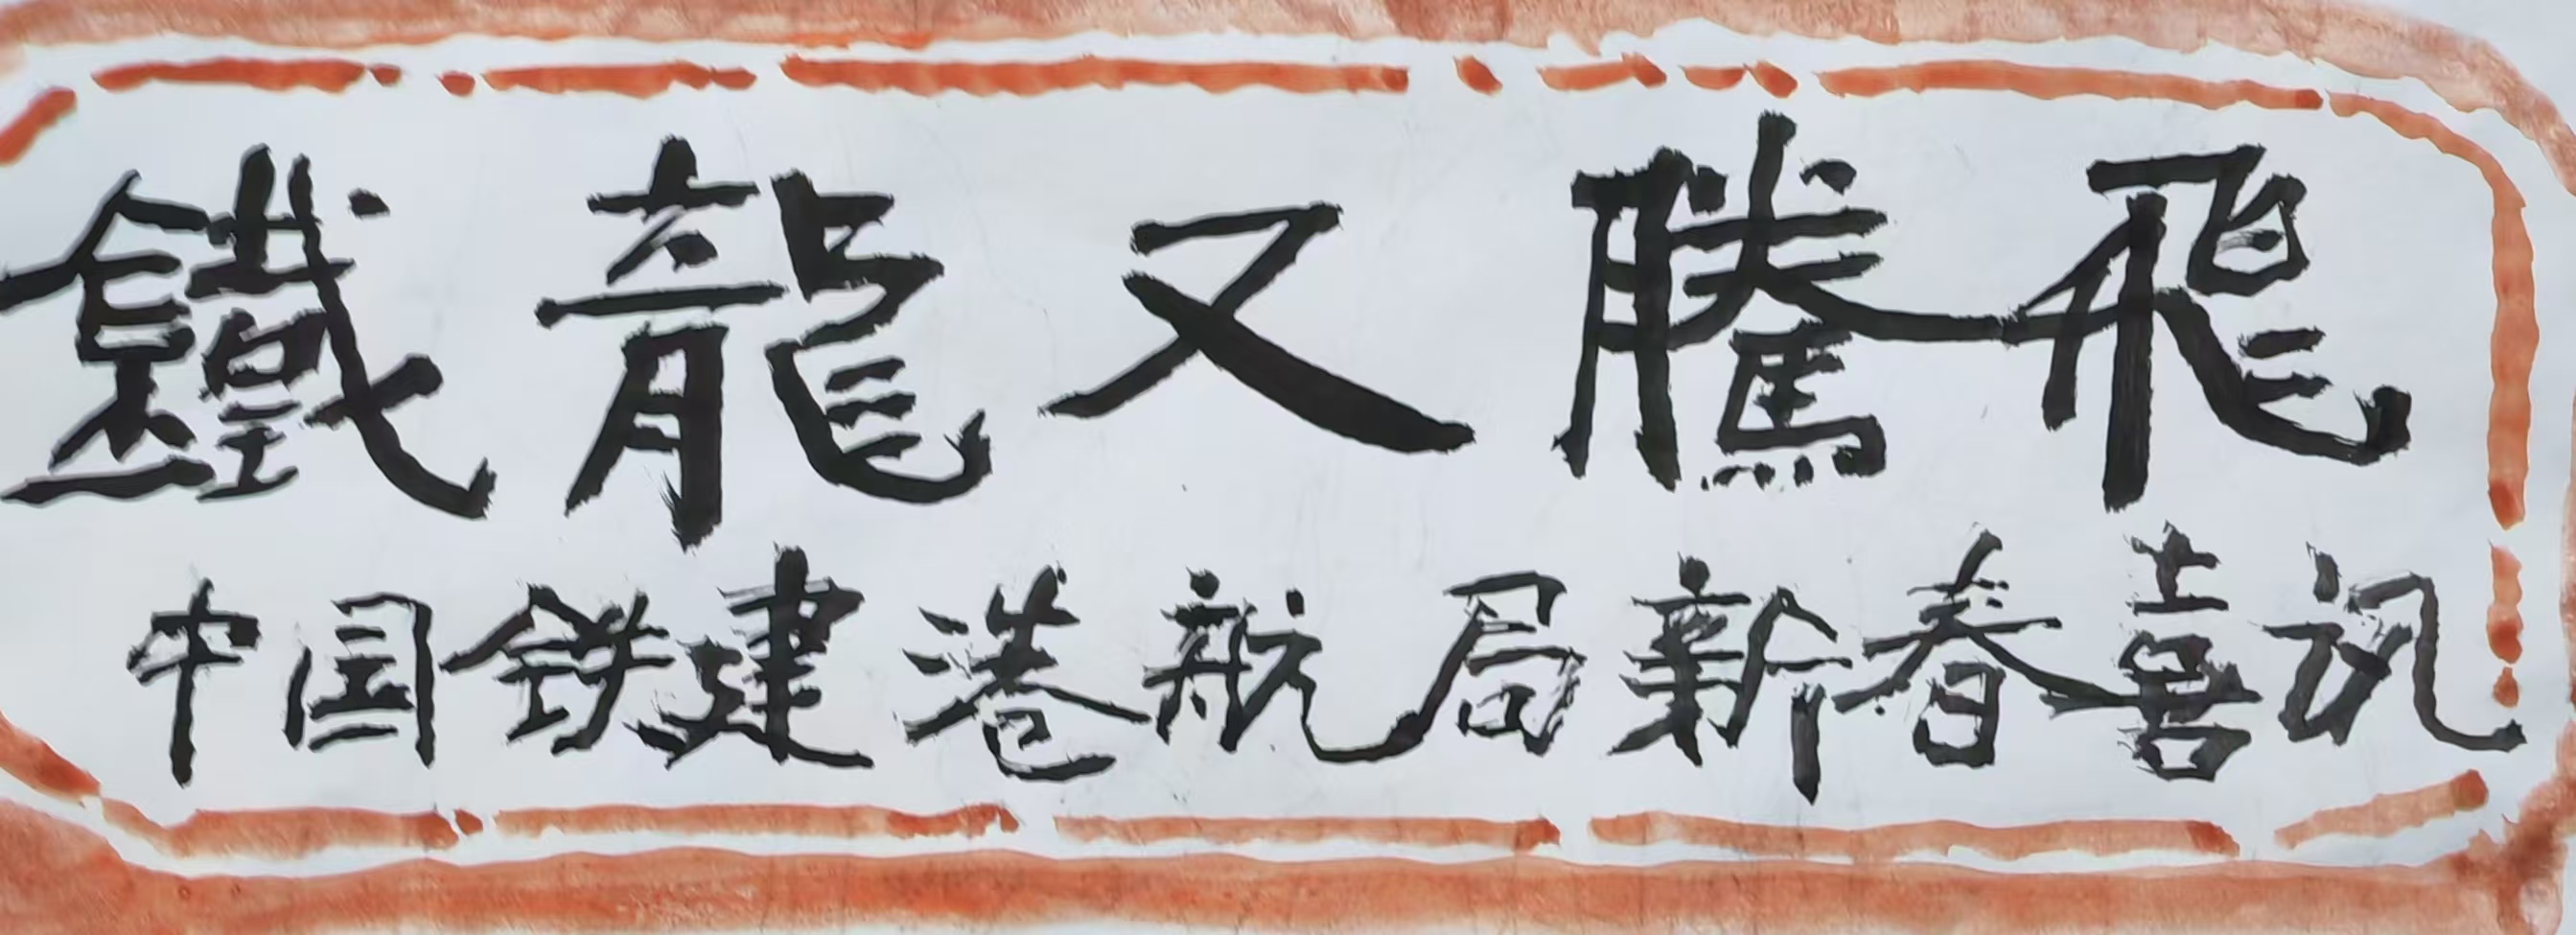 鐵龍又騰飛
中国铁建港航局新春喜讯